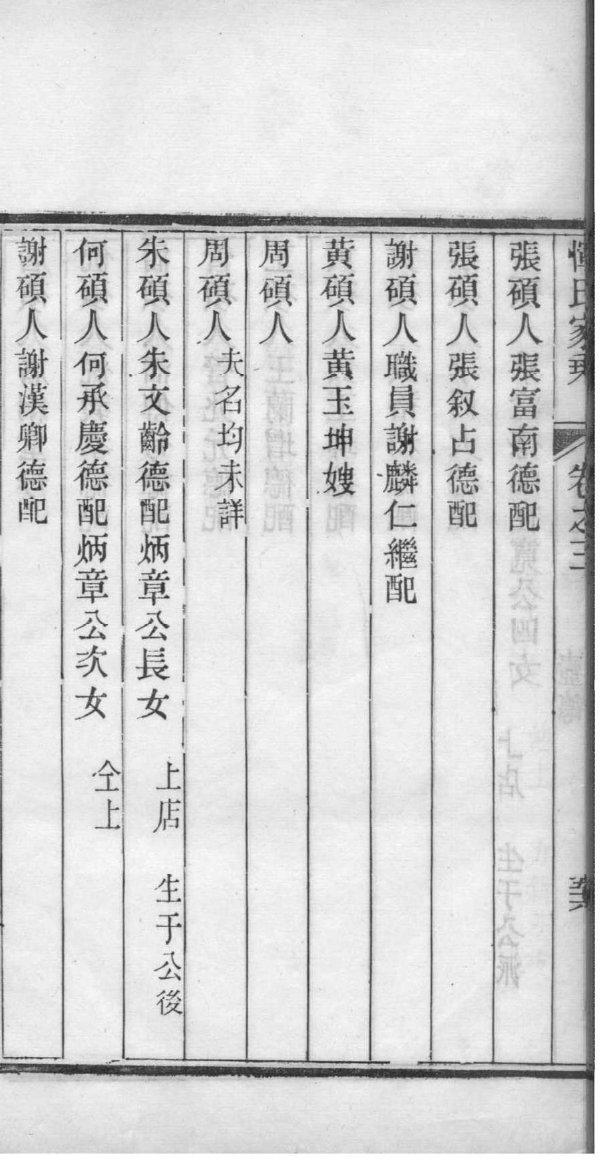 惲氏家乘 卷之三
張碩人張富南德配
張碩人張叙占德配
謝碩人職員謝麟仁繼配
黃碩人黃玉坤嫂
周碩人
周碩人夫名均未詳
朱碩人朱文齡德配炳章公長女 上店 生于公後
何碩人何承慶德配炳章公次女 仝上
謝碩人謝漢卿德配